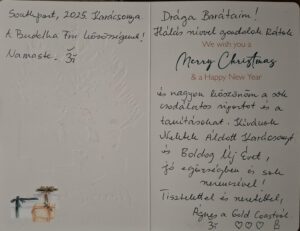 Southport, 2025. Karácsonya
A Buddha Fiú közösségnek!
Namaste.
Drága Barátaim!
Hálás szívvel gondolok Rátok
We wish you a
Merry Christmas
& a Happy New Year
és nagyon köszönöm a sok
csodálatos riportot és a
tanításokat. Kívánok
Nektek Áldott Karácsonyt
és Boldog Új Évet,
jó egészségben és sok
Tisztelettel és szeretettel,
Ágnes a Gold Coastról